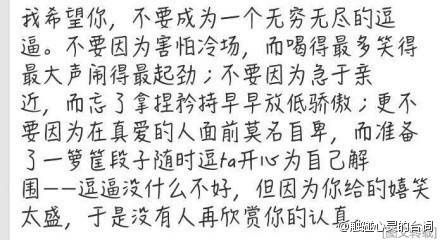 我希望你，不要成为一个无穷无尽的逗
逼。不要因为害怕冷场，而喝得最多笑得
最大声闹得最起劲；不要因为急于亲
近，而忘了拿捏矜持早早放低骄傲；更不
要因为在真爱的人面前莫名自卑，而准备
了一箩筐段子随时逗ta开心为自己解
围——逗逼没什么不好，但因为你给的嬉笑
太盛，于是没有人再欣赏你的认真
@触碰心灵的台词